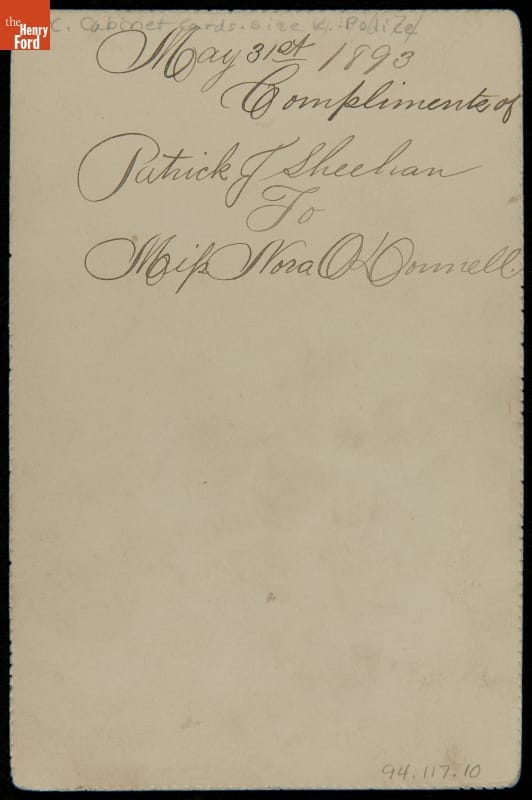 the
Henry
Ford
C. Cabinet Cards. size K.
May 31st 1893
Compliments of
Patrick J Sheehan
To
Miss Nora O'Donnell.
94.117.10